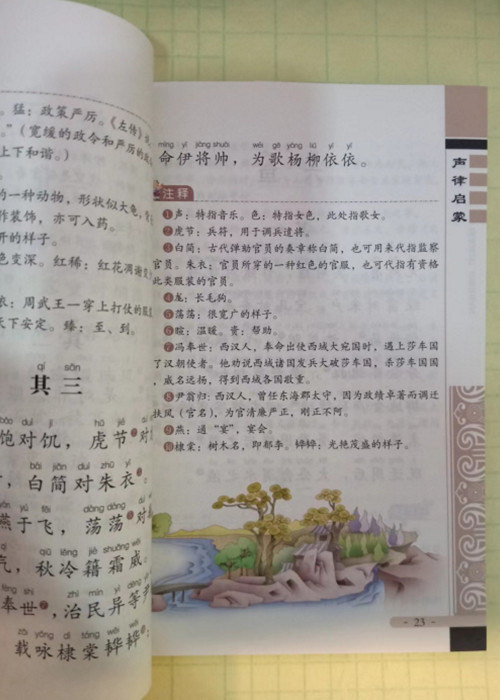 猛：政策严厉。《左传》
。”（宽缓的政令和严厉的政
上下和谐。）
的一种动物，形状似大龟，
作装饰，亦可入药。
开的样子。
色变深。红稀：红花凋谢
衣：周武王一穿上打仗的
天下安定。臻：至、到。
qí sān
其三
duì jī hǔ jié
饱对饥，虎节❷对
bái jiǎn duì zhū yī
，白简对朱衣❸
yú fēi
燕于飞，荡荡❺对
qì qiū lěng jiè shuāng wēi
气，秋冷籍霜威。
fèng shì zhì mín yì děng
奉世❼，治民异等尹
zài yǒng dì táng wěi wěi
载咏棣棠韡韡❿
mìng yī jiāng shuài wèi gē yáng liǔ yī yī
命伊将帅，为歌杨柳依依。
注释
❶声：特指音乐。色：特指女色，此处指歌女。
❷虎节：兵符，用于调兵遣将。
❸白简：古代弹劾官员的奏章称白简，也可用来代指监察
官员。朱衣：官员所穿的一种红色的官服，也可代指有资格
此类服装的官员。
❹尨：长毛狗。
❺荡荡：很宽广的样子。
❻暄：温暖。资：帮助。
❼冯奉世：西汉人，奉命出使西域大宛国时，遇上莎车国
了汉朝使者。他劝说西域诸国发兵大破莎车国，杀莎车国国
，威名远扬，得到西域各国敬重。
❽尹翁归：西汉人，曾任东海郡太守，因为政绩卓著而调迁
扶风（官名），为官清廉严正，刚正不阿。
❾燕：通“宴”，宴会。
❿棣棠：树木名，即郁李。韡韡：光艳茂盛的样子。
声律启蒙
- 23 -